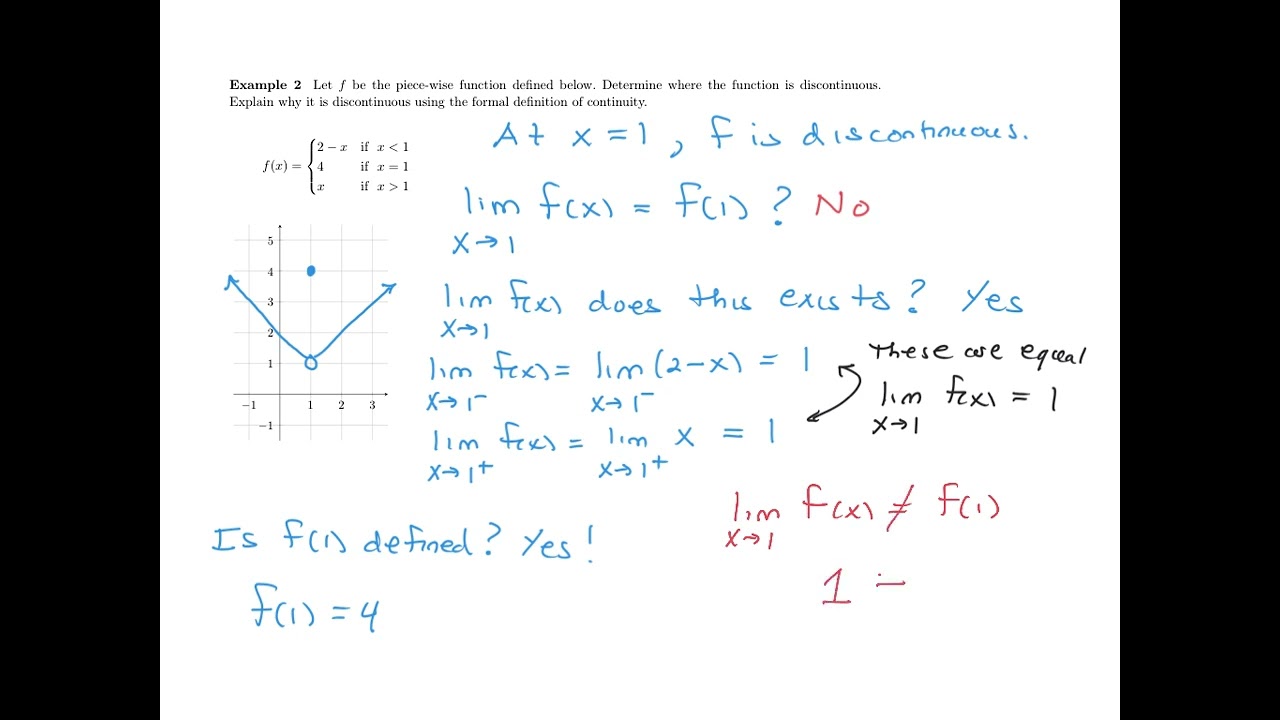 Example 2 Let f be the piece-wise function defined below. Determine where the function is discontinuous.
Explain why it is discontinuous using the formal definition of continuity.
f(x) = { 2 − x if x < 1
4 if x = 1
x if x > 1
At x = 1, f is discontinuous.
lim f(x) = f(1) ? No
x→1
5
4
3
2
1
−1 1 2 3
−1
lim f(x) does this exists? Yes
x→1
lim f(x) = lim (2−x) = 1
x→1⁻ x→1⁻
lim f(x) = lim x = 1
x→1⁺ x→1⁺
These are equal
lim f(x) = 1
x→1
Is f(1) defined? Yes!
f(1) = 4
lim f(x) ≠ f(1)
x→1
1 =